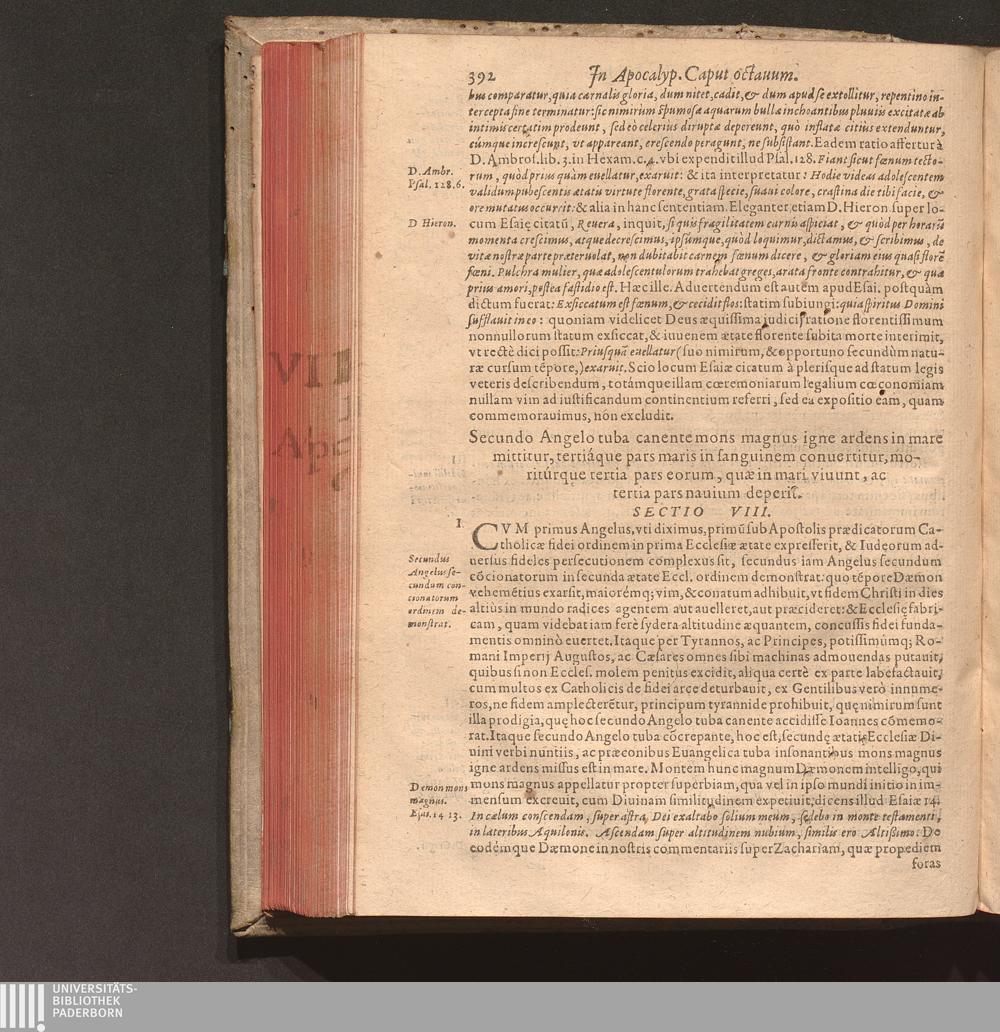 392 In Apocalyp. Caput octauum.
bus comparatur, quia carnalis gloria, dum nitet, cadit, & dum apud se extollitur, repentino in-
tercepta fine terminatur: sic nimirùm spumosæ aquarum bullæ inchoantibus pluuiis excitatæ ab
intimis certatim prodeunt, sed eò celerius diruptæ depereunt, quò inflatæ citiùs extenduntur,
cùmque increscunt, vt appareant, crescendo peragunt, ne subsistant. Eadem ratio affertur à
D. Ambros. lib. 3. in Hexam. c. 4. vbi expendit illud Psal. 128. Fiant sicut fœnum tecto-
D. Ambr.
Psal. 128. 6.
rum, quòd prius quàm euellatur, exaruit: & ita interpretatur: Hodie videas adolescentem
validum pubescentis ætatis virtute florente, grata specie, suaui colore, crastina die tibi facie, &
ore mutatus occurrit: & alia in hanc sententiam. Eleganter etiam D. Hieron. super lo-
D Hieron.
cum Esaię citatũ, Reuera, inquit, si quis fragilitatem carnis aspiciat, & quòd per horarũ
momenta crescimus, atque decrescimus, ipsúmque, quòd loquimur, dictamus, & scribimus, de
vitæ nostræ parte præteruolat, non dubitabit carnem fœnum dicere, & gloriam eius quasi florẽ
fœni. Pulchra mulier, quæ adolescentulorum trahebat greges, arata fronte contrahitur, & quæ
prius amori, postea fastidio est. Hæc ille. Aduertendum est autem apud Esai. postquàm
dictum fuerat: Exsiccatum est fœnum, & cecidit flos: statim subiungi: quia spiritus Domini
sufflauit in eo: quoniam videlicet Deus æquissima iudicij ratione florentissimum
nonnullorum statum exsiccat, & iuuenem ætate florente subita morte interimit,
vt rectè dici possit: Priusquã euellatur (suo nimirum, & opportuno secundùm natu-
ræ cursum tẽpore,) exaruit. Scio locum Esaiæ citatum à plerisque ad statum legis
veteris describendum, totámque illam cœremoniarum legalium cœconomiam
nullam vim ad iustificandum continentium referri, sed ea expositio eam, quam
commemorauimus, non excludit.
Secundo Angelo tuba canente mons magnus igne ardens in mare
mittitur, tertiáque pars maris in sanguinem conuertitur, mo-
ritúrque tertia pars eorum, quæ in mari viuunt, ac
tertia pars nauium deperit.
SECTIO VIII.
I.
CVM primus Angelus, vti diximus, primũ sub Apostolis prædicatorum Ca-
tholicæ fidei ordinem in prima Ecclesiæ ætate expresserit, & Iudęorum ad-
uersus fideles persecutionem complexus sit, secundus iam Angelus secundum
cõcionatorum in secunda ætate Eccl. ordinem demonstrat: quo tẽpore Dæmon
vehemẽtius exarsit, maiorémq; vim, & conatum adhibuit, vt fidem Christi in dies
altiùs in mundo radices agentem aut auelleret, aut præcideret: & Ecclesię fabri-
cam, quam videbat iam ferè sydera altitudine æquantem, concussis fidei funda-
mentis omninò euertet. Itaque per Tyrannos, ac Principes, potissimùmq; Ro-
Secundus
Angelus se-
cundum con-
cionatorum
ordinem de-
monstrat.
mani Imperij Augustos, ac Cæsares omnes sibi machinas admouendas putauit,
quibus si non Eccles. molem penitus excidit, aliqua certè ex parte labefactauit,
cum multos ex Catholicis de fidei arce deturbauit, ex Gentilibus verò innume-
ros, ne fidem amplecterẽtur, principum tyrannide prohibuit, quę nimirum sunt
illa prodigia, quę hoc secundo Angelo tuba canente accidisse Ioannes cõmemo-
rat. Itaque secundo Angelo tuba cõcrepante, hoc est, secundę ætatis Ecclesiæ Di-
uini verbi nuntiis, ac præconibus Euangelica tuba insonantibus mons magnus
igne ardens missus est in mare. Montem hunc magnum Dæmonem intelligo, qui
mons magnus appellatur propter superbiam, qua vel in ipso mundi initio in im-
mensum excreuit, cum Diuinam similitudinem expetiuit, dicens illud Esaiæ 14.
Demon mons
magnus.
Esai. 14 13.
In cælum conscendam, super astra Dei exaltabo solium meum, sedebo in monte testamenti,
in lateribus Aquilonis. Ascendam super altitudinem nubium, similis ero Altissimo: De
eodémque Dæmone in nostris commentariis super Zachariam, quæ propediem
foras
UNIVERSITÄTS-
BIBLIOTHEK
PADERBORN